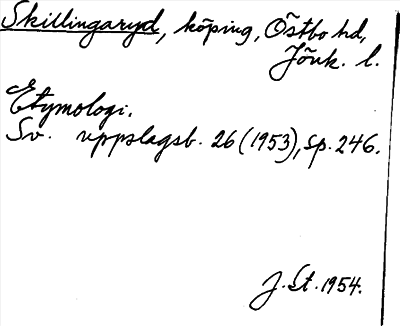 Skillingaryd, köping, Östbo hd,
Jönk. l.
Etymologi.
Sv. uppslagsb. 26 (1953), sp. 246.
J. St. 1954.